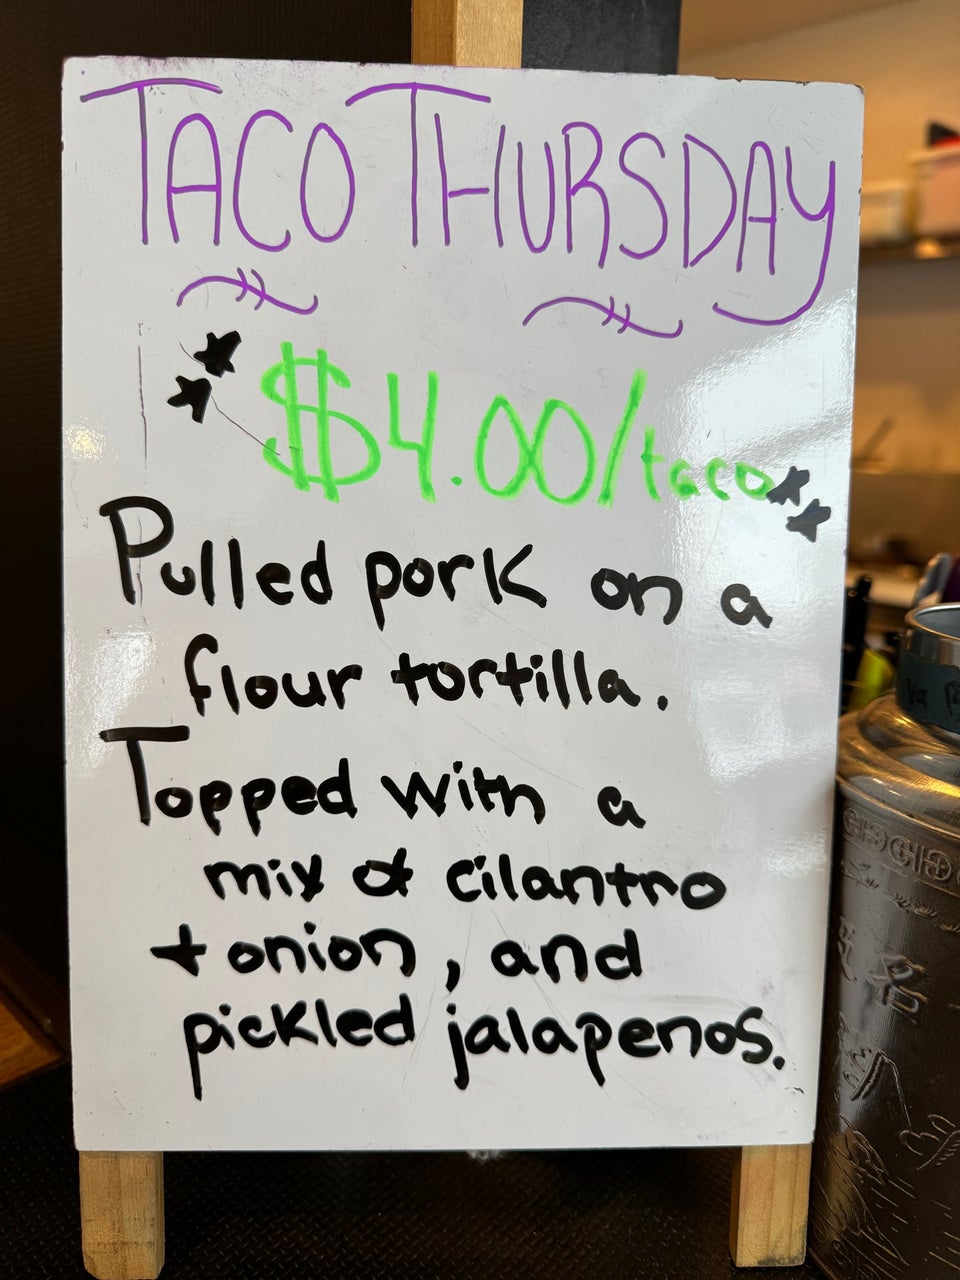 TACO THURSDAY
$4.00/taco
Pulled pork on a
flour tortilla.
Topped with a
mix of cilantro
+ onion, and
pickled jalapenos.